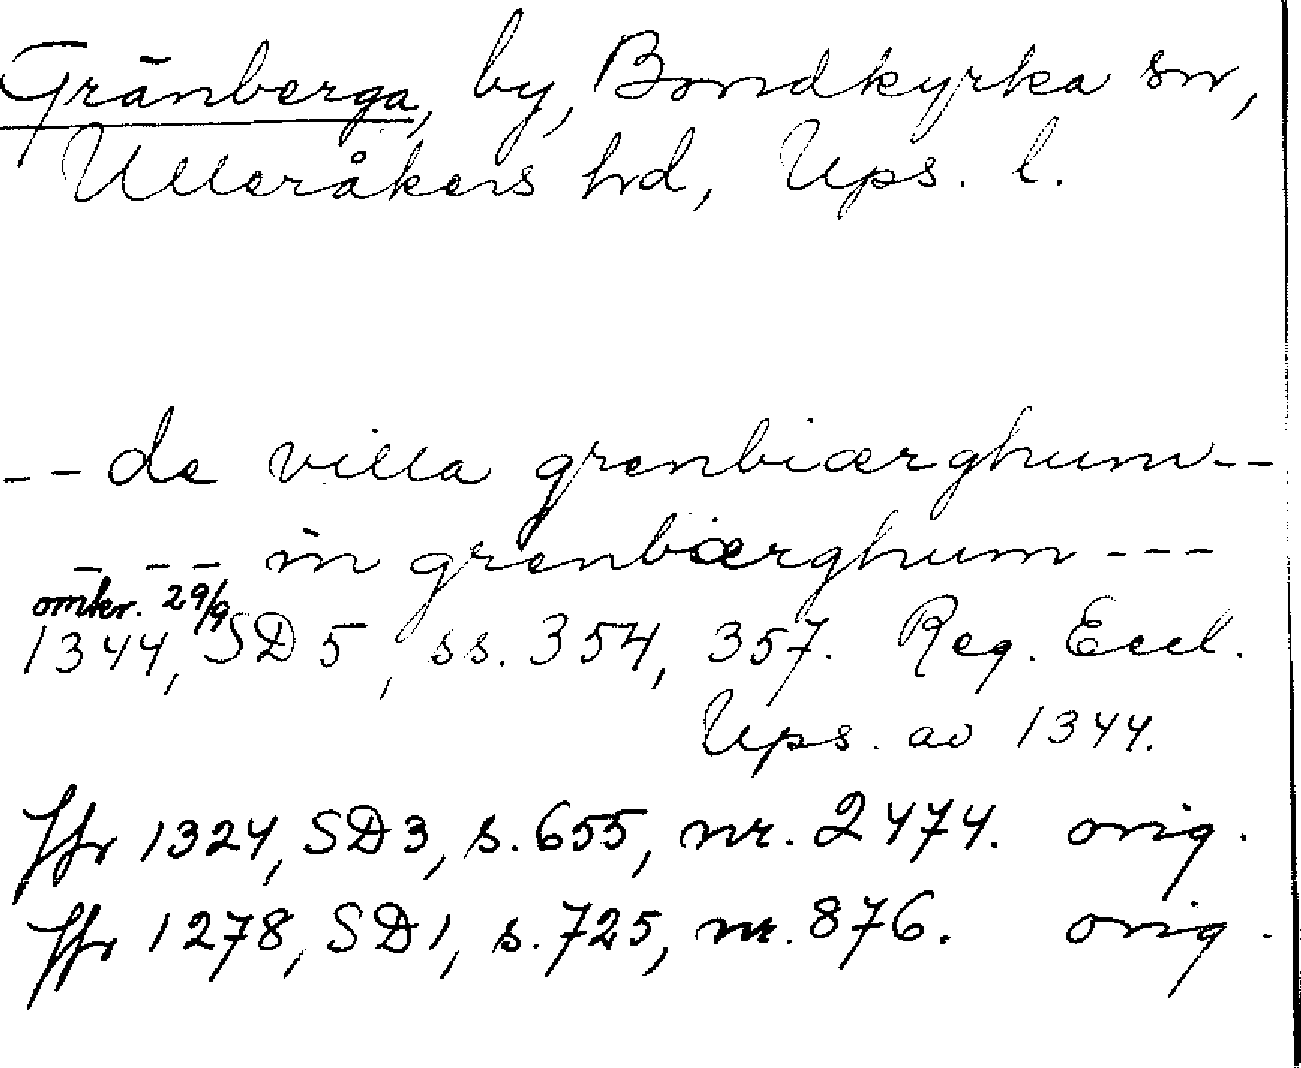 Gränberga, by, Bondkyrka sn,
Ulleråkers hd, Ups. l.
-- de villa grenbiærghum --
- - - in grenbiærghum ---
omkr. 29/9
1344, SD 5, ss. 354, 357. Reg. Eccl.
Ups. av 1344.
Jfr 1324, SD 3, s. 655, nr. 2474. orig.
Jfr 1278, SD 1, s. 725, nr. 876. orig.